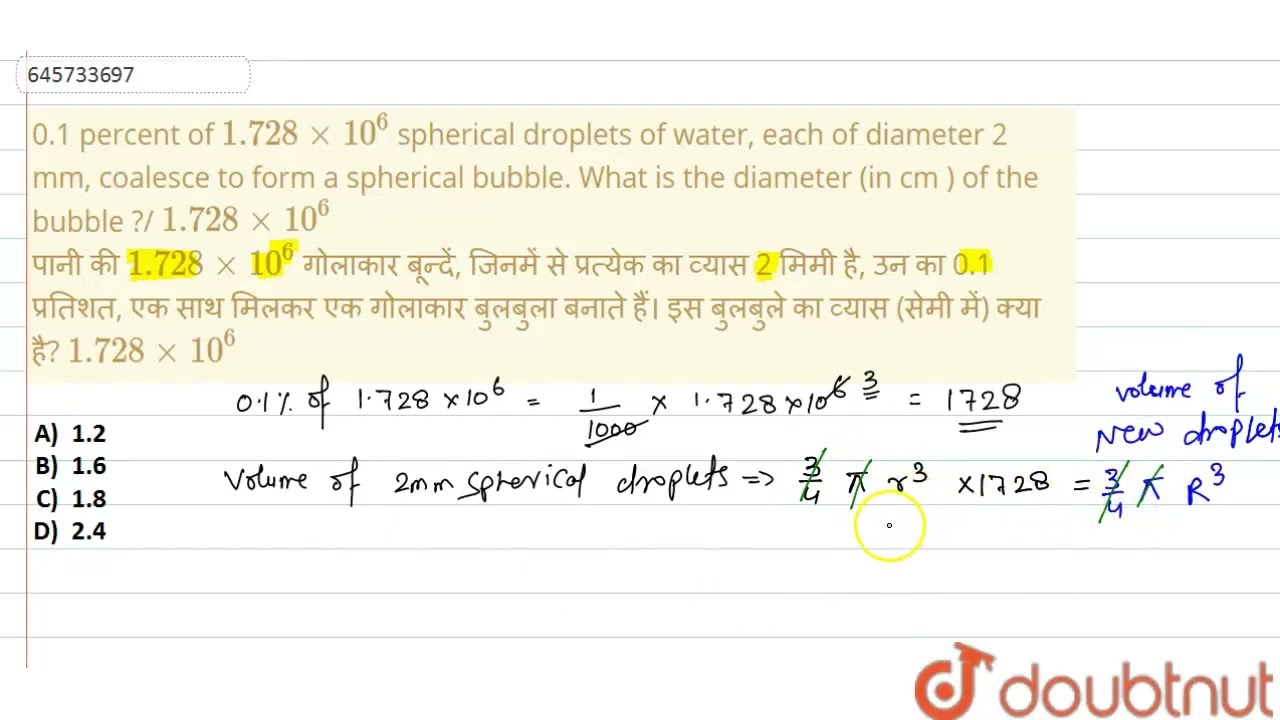 645733697
0.1 percent of 1.728 × 10⁶ spherical droplets of water, each of diameter 2
mm, coalesce to form a spherical bubble. What is the diameter (in cm ) of the
bubble ?/ 1.728 × 10⁶
पानी की 1.728 × 10⁶ गोलाकार बून्दें, जिनमें से प्रत्येक का व्यास 2 मिमी है, उन का 0.1
प्रतिशत, एक साथ मिलकर एक गोलाकार बुलबुला बनाते हैं। इस बुलबुले का व्यास (सेमी में) क्या
है? 1.728 × 10⁶
0.1% of 1.728 × 10⁶ = 1/1000 × 1.728 × 10⁶ ³ = 1728
volume of
New droplets
A) 1.2
B) 1.6
C) 1.8
D) 2.4
Volume of 2mm spherical droplets => 3/4 π r³ × 1728 = 3/4 π R³
doubtnut